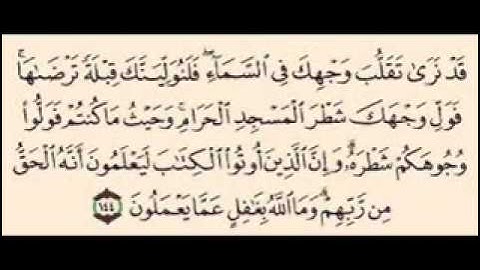 قَدْ نَرَىٰ تَقَلُّبَ وَجْهِكَ فِي ٱلسَّمَآءِ ۖ فَلَنُوَلِّيَنَّكَ قِبْلَةً تَرْضَىٰهَا ۚ
فَوَلِّ وَجْهَكَ شَطْرَ ٱلْمَسْجِدِ ٱلْحَرَامِ ۚ وَحَيْثُ مَا كُنتُمْ فَوَلُّوا۟
وُجُوهَكُمْ شَطْرَهُۥ ۗ وَإِنَّ ٱلَّذِينَ أُوتُوا۟ ٱلْكِتَٰبَ لَيَعْلَمُونَ أَنَّهُ ٱلْحَقُّ
مِن رَّبِّهِمْ ۗ وَمَا ٱللَّهُ بِغَٰفِلٍ عَمَّا يَعْمَلُونَ ١٤٤